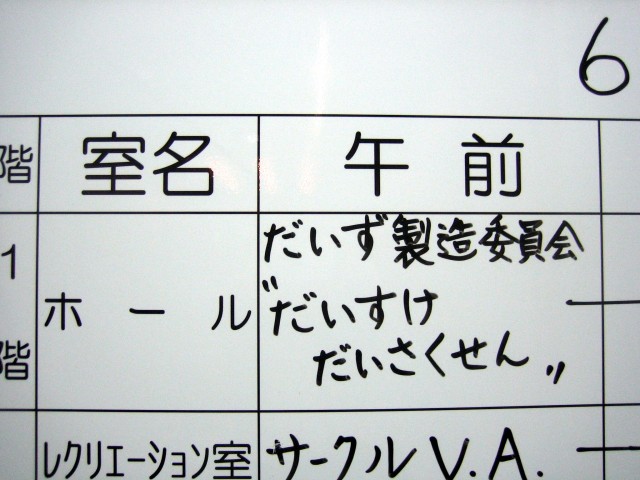 6
階 室名 午前
だいず製造委員会
1階 ホール "だいすけ
だいさくせん"
レクリエーション室 サークルV.A.